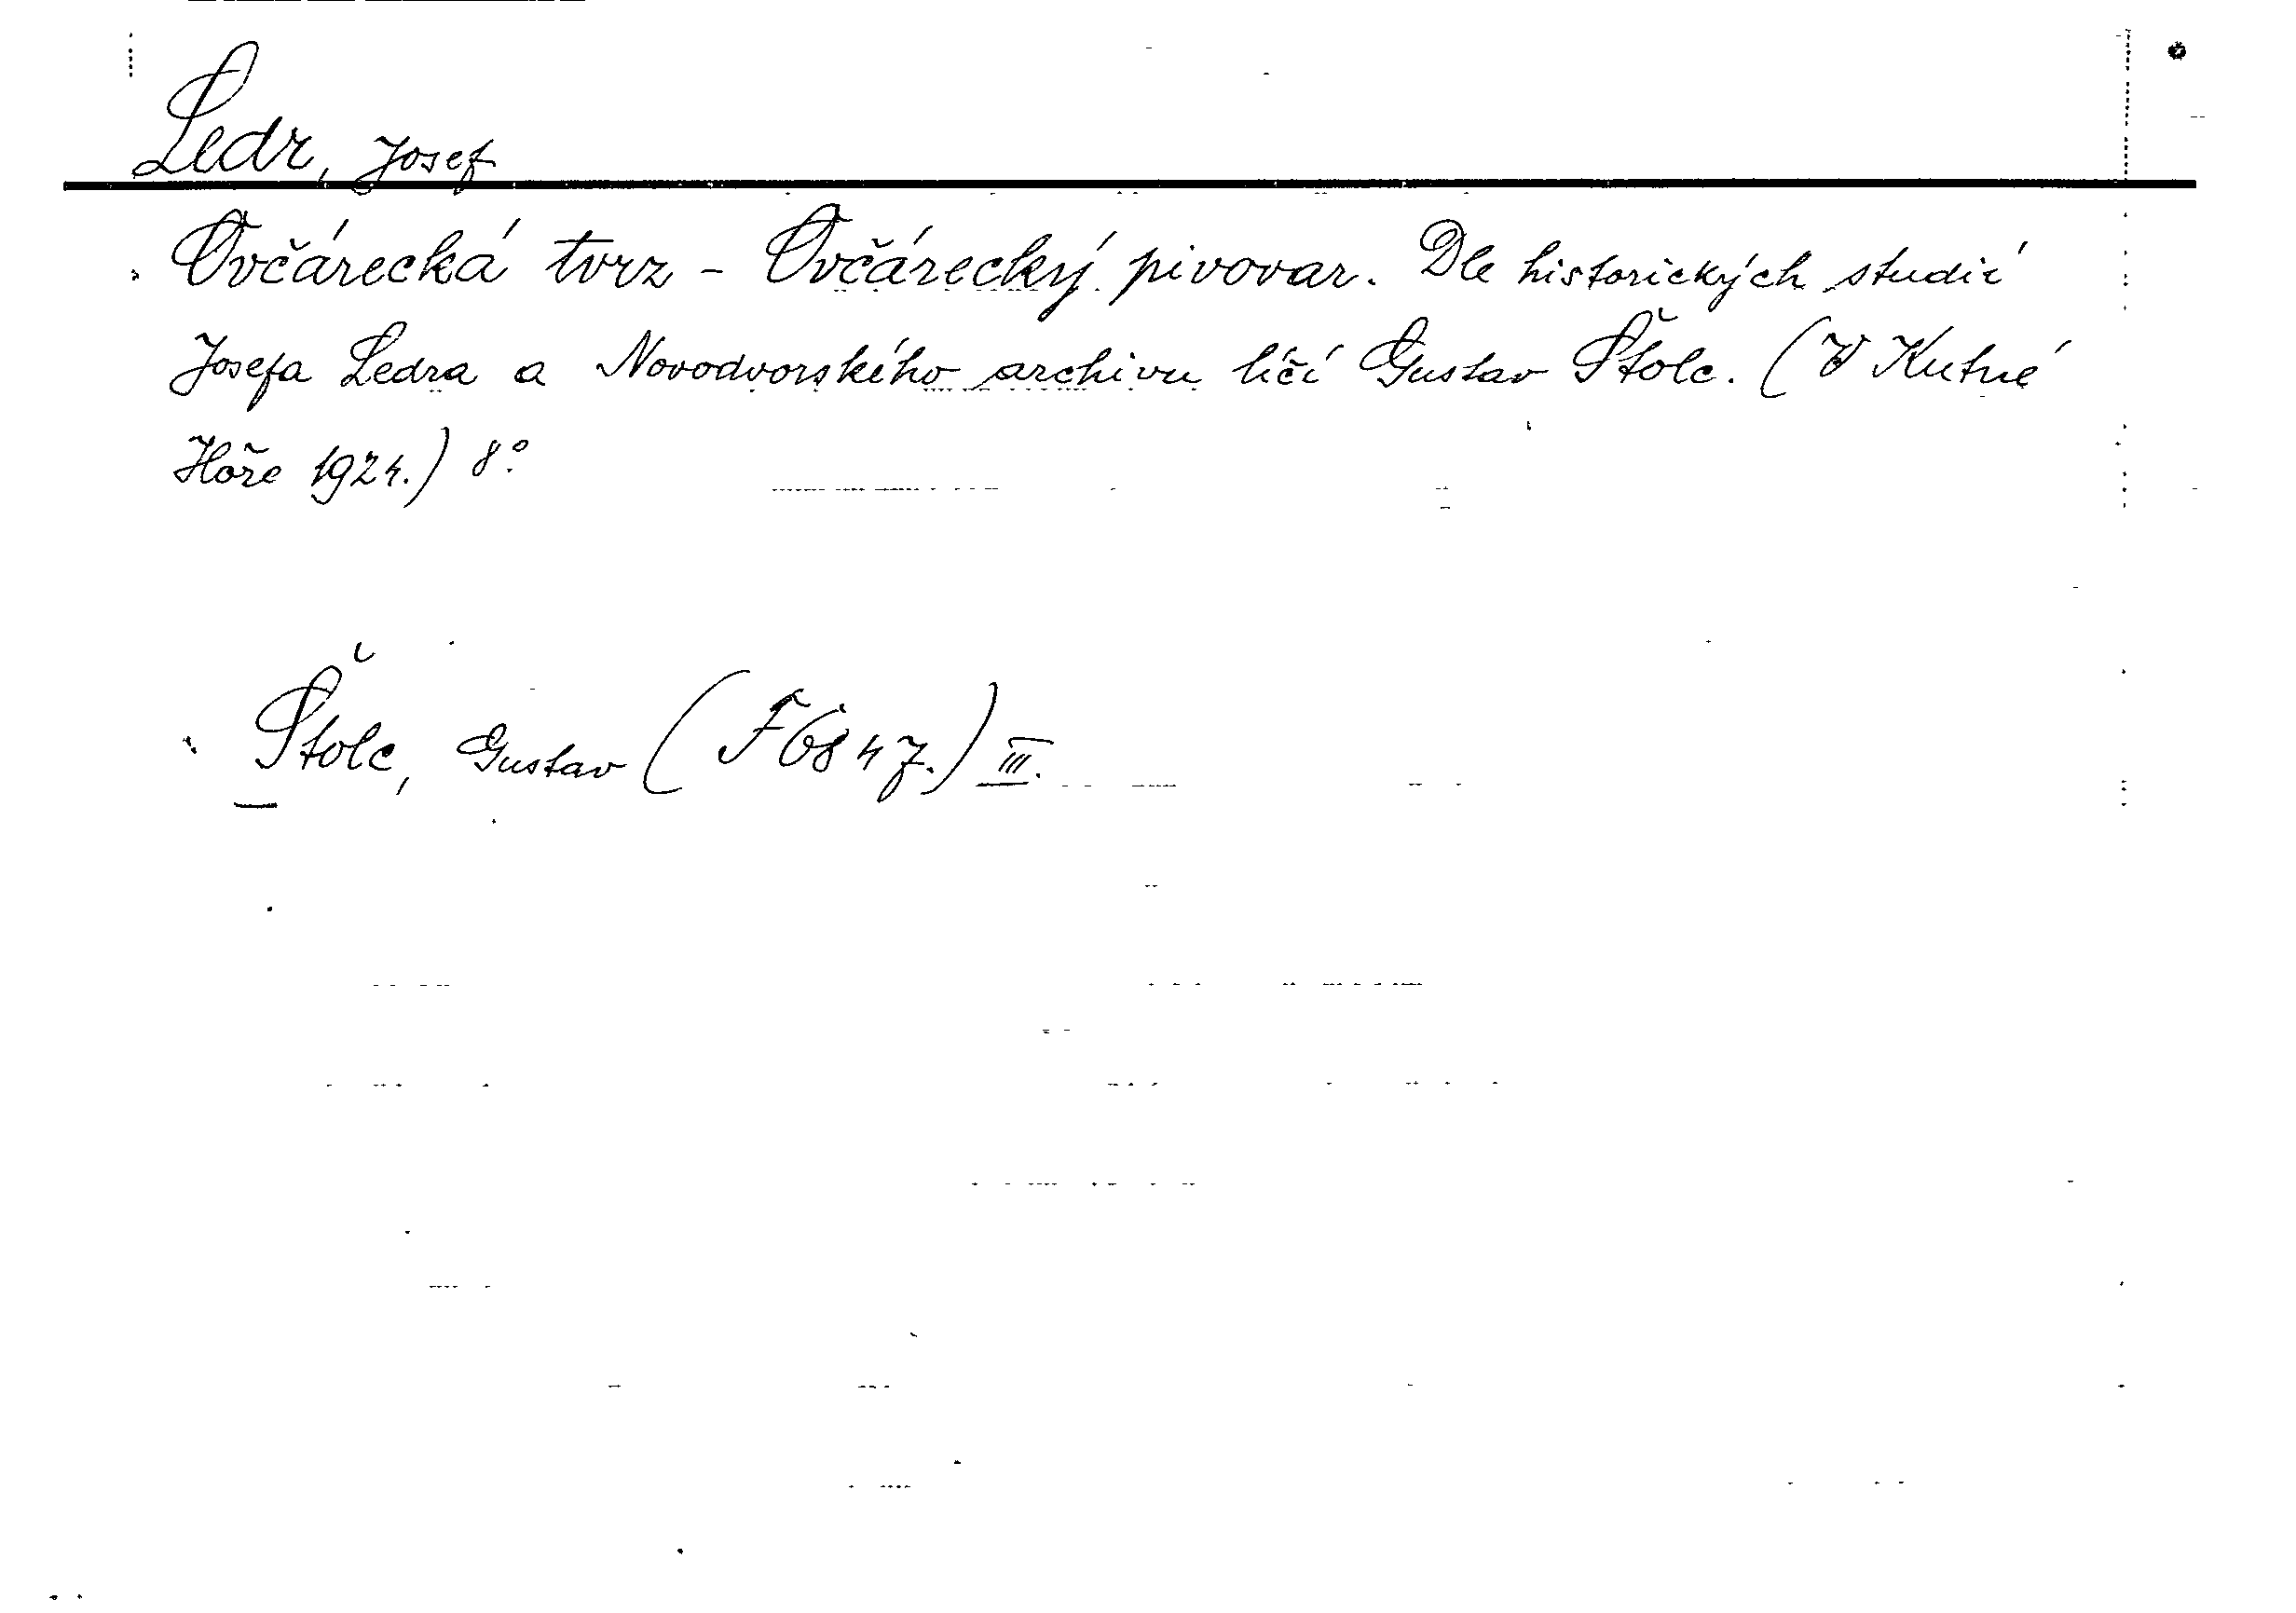 Ledr, Josef
Ovčárecká tvrz - Ovčárecký pivovar. Dle historických studií
Josefa Ledra a Novodvorského archivu líčí Gustav Štolc. (V Kutné
Hoře 1924.) 8°.
Štolc, Gustav (F6847.) III.